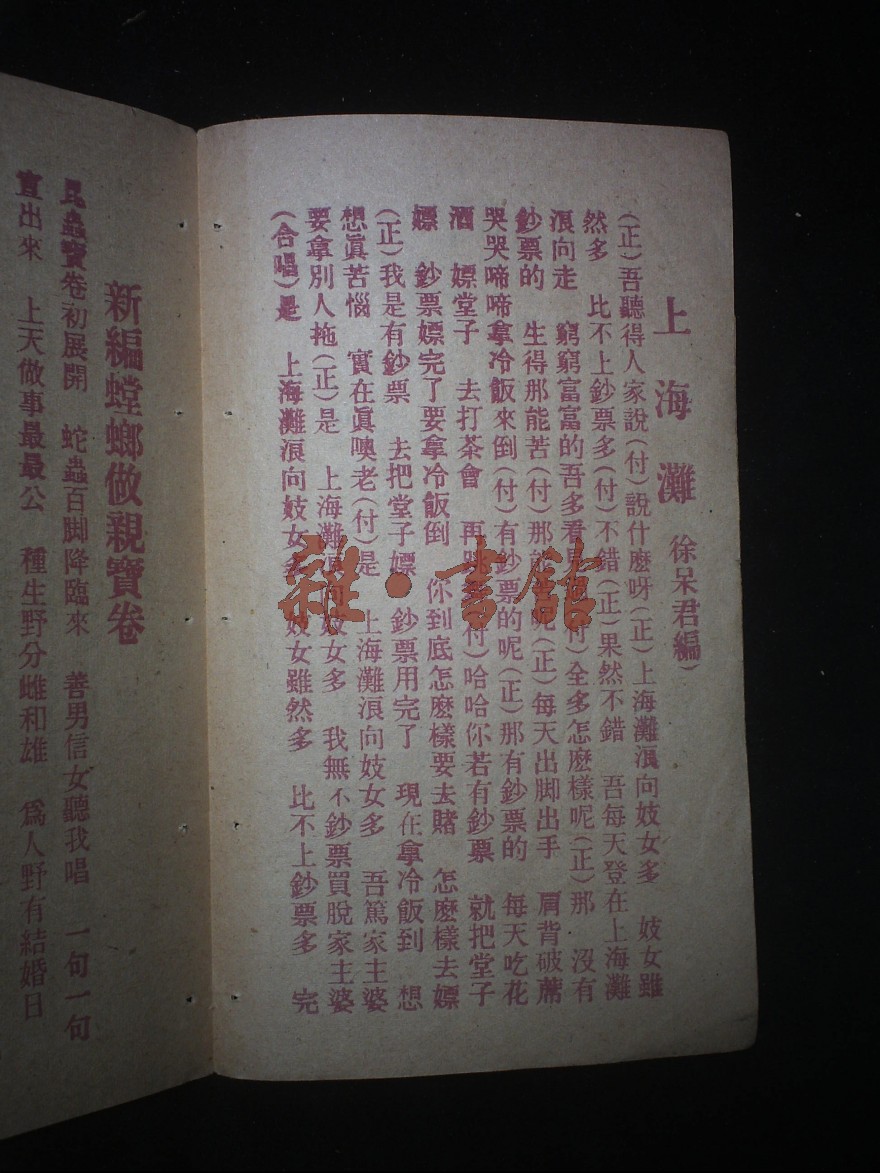 上海灘 徐呆君編）
（正）吾聽得人家說（付）說什麽呀（正）上海灘浪向妓女多 妓女雖
然多 比不上鈔票多（付）不錯（正）果然不錯 吾每天登在上海灘
浪向走 窮窮富富的吾多看見（付）全多怎麽樣呢（正）那 沒有
鈔票的 生得那能苦（付）那能 呢（正）每天出脚出手 肩背破蓆
哭哭啼啼拿冷飯來倒（付）有鈔票的呢（正）那有鈔票的 每天吃花
酒 嫖堂子 去打茶會 再跳 （付）哈哈你若有鈔票 就把堂子
嫖 鈔票嫖完了要拿冷飯倒 你到底怎麽樣要去賭 怎麽樣去嫖
（正）我是有鈔票 去把堂子嫖 鈔票用完了 現在拿冷飯到 想
想眞苦惱 實在眞噢老（付）是 上海灘浪向妓女多 吾篤家主婆
要拿別人拖（正）是 上海灘浪向妓女多 我無不鈔票買脫家主婆
（合唱）是 上海灘浪向妓女多 妓女雖然多 比不上鈔票多 完
新編螳螂做親寶卷
昆蟲寶卷初展開 蛇蟲百脚降臨來 善男信女聽我唱 一句一句
直出來 上天做事最最公 種生野分雌和雄 爲人野有結婚日
雜·書館